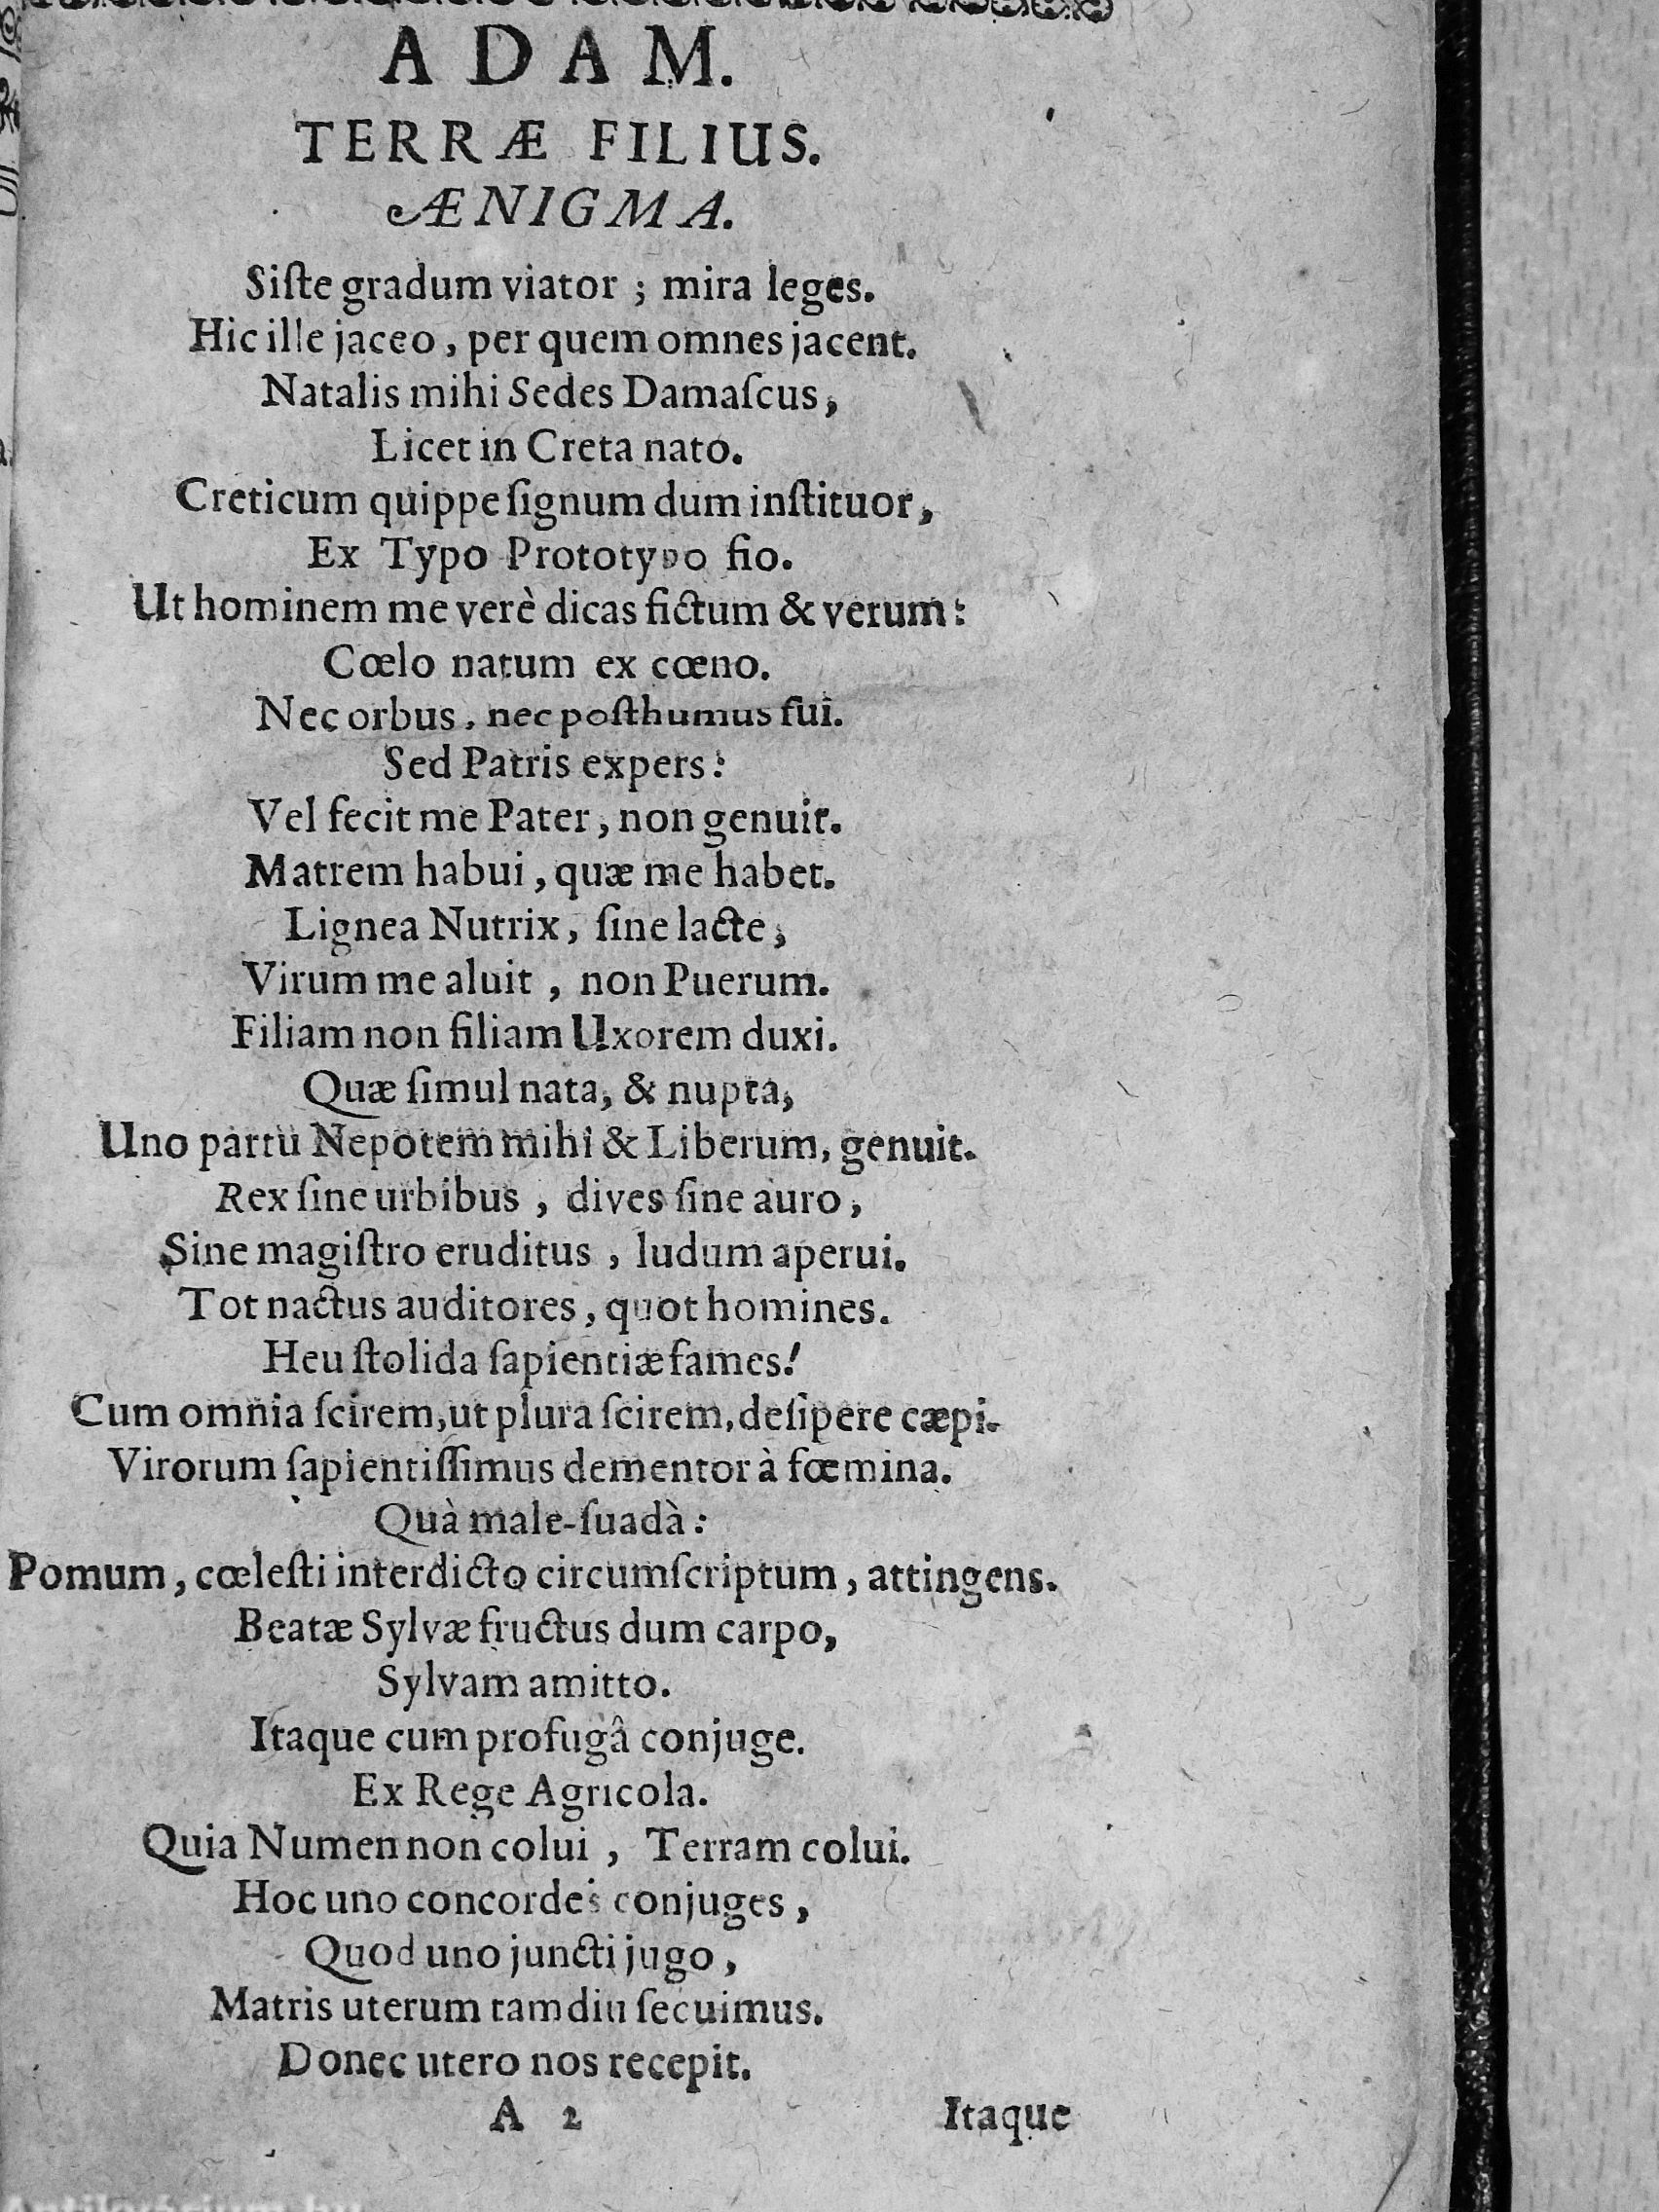 ADAM.
TERRÆ FILIUS.
ÆNIGMA.
Siſte gradum viator ; mira leges.
Hic ille jaceo, per quem omnes jacent.
Natalis mihi Sedes Damaſcus,
Licet in Creta nato.
Creticum quippe ſignum dum inſtituor,
Ex Typo Prototypo fio.
Ut hominem me verè dicas fictum & verum:
Cœlo natum ex cœno.
Nec orbus, nec poſthumus fui.
Sed Patris expers:
Vel fecit me Pater, non genuit.
Matrem habui, quæ me habet.
Lignea Nutrix, ſine lacte,
Virum me aluit, non Puerum.
Filiam non filiam Uxorem duxi.
Quæ ſimul nata, & nupta,
Uno partu Nepotem mihi & Liberum, genuit.
Rex ſine urbibus, dives ſine auro,
Sine magiſtro eruditus, ludum aperui.
Tot nactus auditores, quot homines.
Heu ſtolida ſapientiæ fames!
Cum omnia ſcirem, ut plura ſcirem, deſipere cæpi.
Virorum ſapientiſſimus dementor à fœmina.
Quà male-ſuadà:
Pomum, cœleſti interdicto circumſcriptum, attingens.
Beatæ Sylvæ fructus dum carpo,
Sylvam amitto.
Itaque cum profugâ conjuge.
Ex Rege Agricola.
Quia Numen non colui, Terram colui.
Hoc uno concordes conjuges,
Quod uno juncti jugo,
Matris uterum tamdiu ſecuimus.
Donec utero nos recepit.
A 2 Itaque